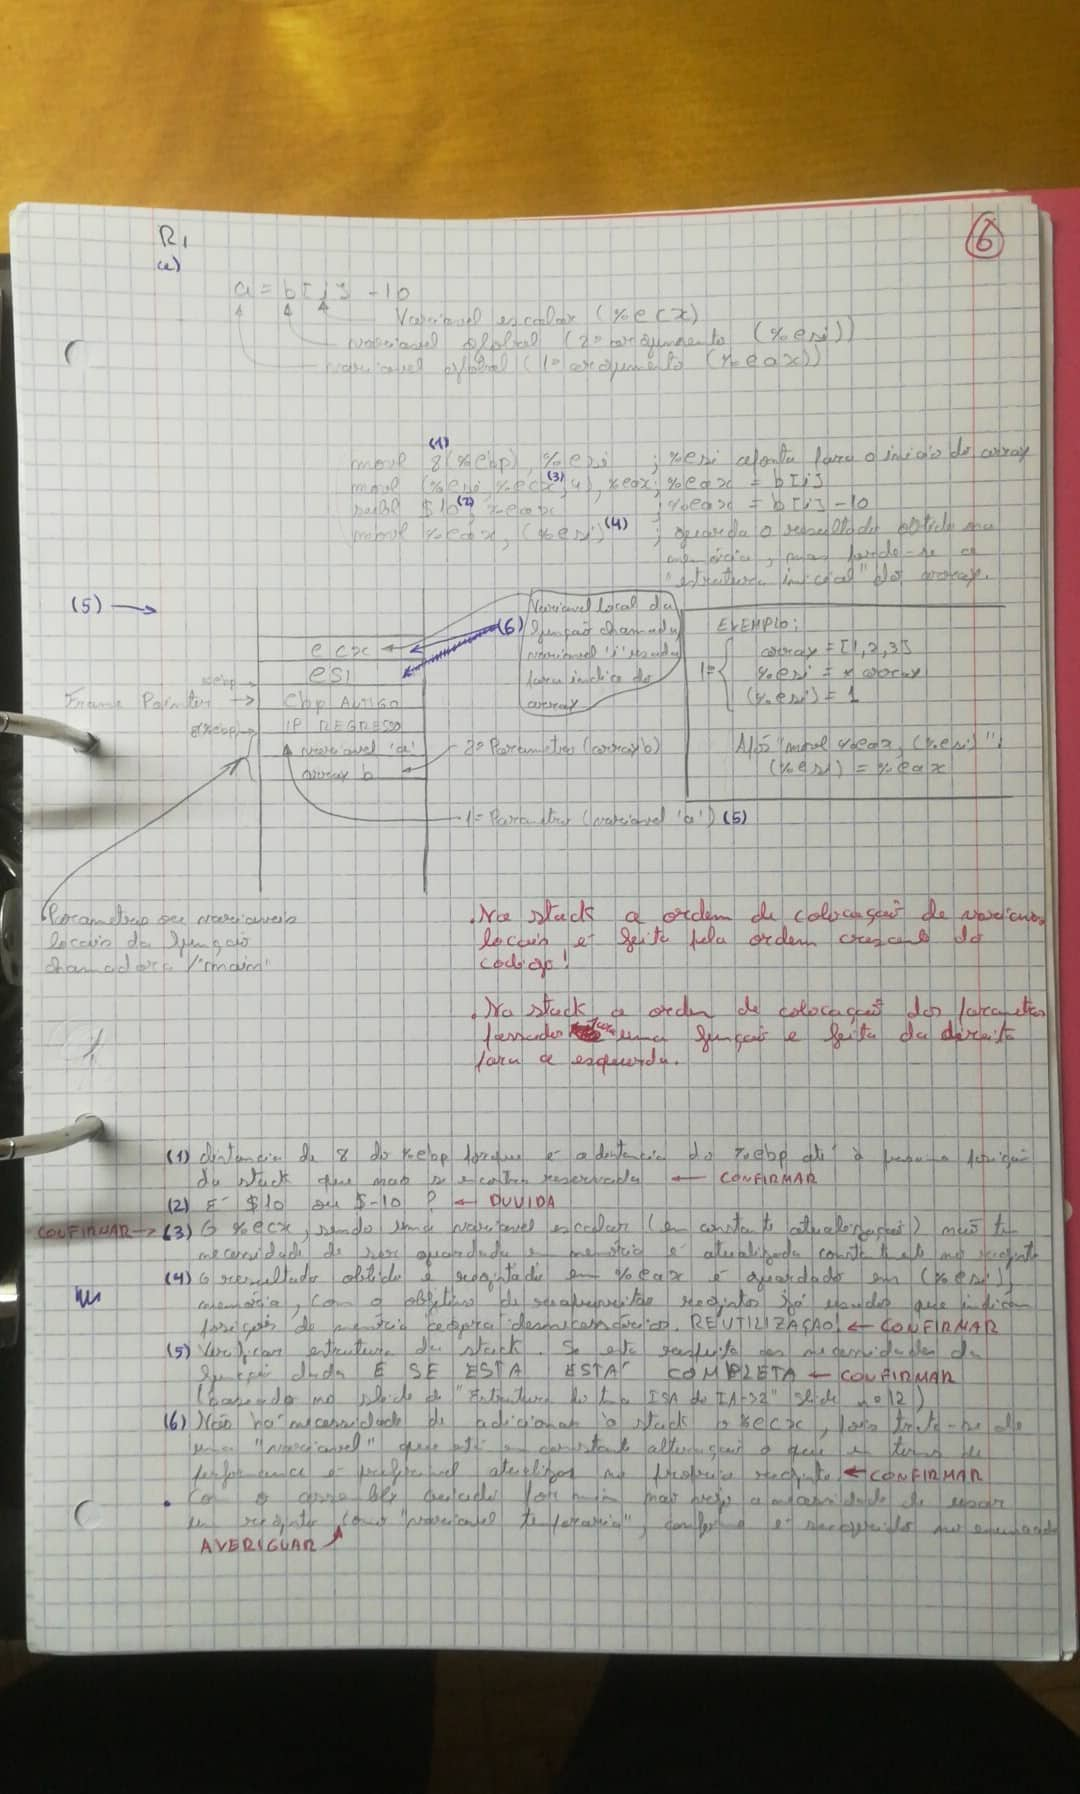 R1
6
(a)
a = b[i] - 10
Variavel escalar (%ecx)
variavel global (2º argumento (%esi))
variavel global (1º argumento (%eax))
(1)
movl 8(%ebp), %esi ; %esi aponta para o inicio do array
movl (%esi, %ecx(3), 4), %eax ; %eax = b[i]
subl $10(2), %eax ; %eax = b[i] - 10
movl %eax, (%esi)(4) ; guarda o resultado obtido na
memória, mas perde-se a
"estrutura inicial" do array.
(5)
(6)
Variavel local da
função chamada
variavel 'i' usada
para indice do
array
EXEMPLO:
array = [1,2,3]
1º %esi = * array
(%esi) = 1
Após "movl %eax, (%esi)":
(%esi) = %eax
ecx
esi
%ebp
Frame Pointer → ebp ANTIGO
8(%ebp) IP REGRESSO
variavel 'a'
array b
2º Parametro (array b)
1º Parametro (variavel 'a') (5)
Parametros ou variaveis
locais da função
chamadora / "main"
. Na stack a ordem de colocação de variaveis
locais é feita pela ordem do
codigo!
. Na stack a ordem de colocação dos parametros
passados para uma função e feita da direita
para a esquerda.
(1) distancia de 8 do %ebp porque é a distancia do %ebp até à posição
da stack que não se encontra reservada ← CONFIRMAR
(2) É $10 ou $-10 ? ← DUVIDA
CONFIRMAR → (3) O %ecx, sendo uma variavel escalar (em constante atualização) não tem
necessidade de ser guardada em memória e atualizada no registo
(4) O resultado obtido e registado em %eax é guardado em (%esi),
memória, com o objetivo de reaproveitar registos já usados que indicam
posições de memória desnecessários. REUTILIZAÇÃO! ← CONFIRMAR
(5) Verificar estrutura da stack. Se esta as necessidades da
função dada E SE ESTA ESTÁ COMPLETA ← CONFIRMAR
(baseado no slide de "Estrutura do ISA do IA-32" slide nº 12)
(6) Não há necessidade de adicionar à stack o %ecx, pois trata-se de
uma "variavel" que está em constante alteração o que em termos de
performance é preferivel atualizar no proprio registo. ← CONFIRMAR
. Com o criado por mim não vejo a necessidade de usar
um registo como "variavel temporaria", conforme é no enunciado
AVERIGUAR